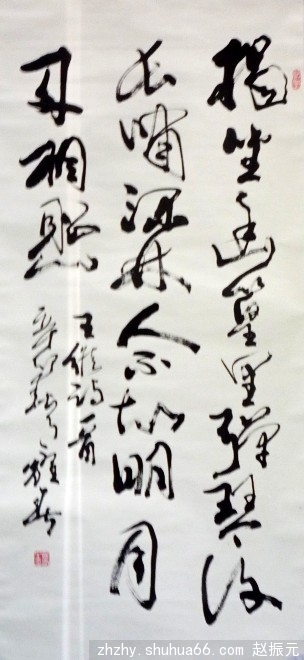 獨坐幽篁里彈琴复
长啸深林人不知明月
来相照
王维诗一首
辛卯
zhzhy.shuhua66.com 赵振元